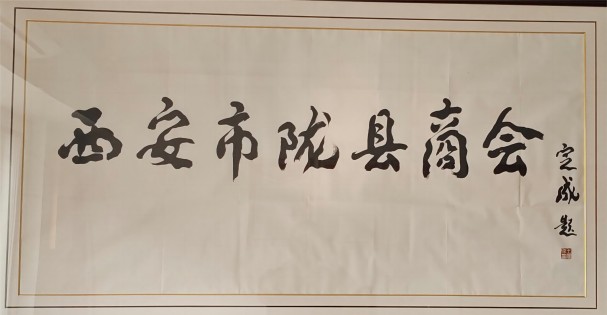 西安市陇县商会
定成题